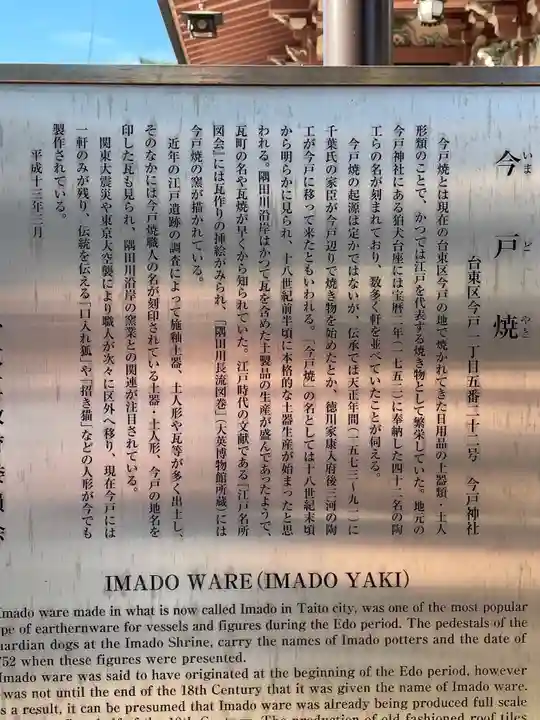 今戸焼
いま ど やき
台東区今戸一丁目五番二十二号 今戸神社
今戸焼とは現在の台東区今戸の地で焼かれてきた日用品の土器類・土人
形類のことで、かつては江戸を代表する焼き物として繁栄していた。地元の
今戸神社にある狛犬台座には宝暦二年(一七五二)に奉納した四十二名の陶
工らの名が刻まれており、数多く軒を並べていたことが伺える。
今戸焼の起源は定かではないが、伝承では天正年間(一五七三〜九一)に
千葉氏の家臣が今戸辺りで焼き物を始めたとか、徳川家康入府後三河の陶
工が今戸に移って来たともいわれる。「今戸焼」の名としては十八世紀末頃
から明らかに見られ、十八世紀前半頃に本格的な土器生産が始まったと思
われる。隅田川沿岸はかつて瓦を含めた土製品の生産が盛んであったようで、
瓦町の名や瓦焼が早くから知られていた。江戸時代の文献である「江戸名所
図会」には瓦作りの挿絵がみられ、「隅田川長流図巻」(大英博物館所蔵)には
今戸焼の窯が描かれている。
近年の江戸遺跡の調査によって施釉土器、土人形や瓦等が多く出土し、
そのなかには今戸焼職人の名が刻印されている土器、土人形、今戸の地名を
印した瓦も見られ、隅田川沿岸の窯業との関連が注目されている。
関東大震災や東京大空襲により職人が次々に区外へ移り、現在今戸には
一軒のみが残り、伝統を伝える「口入れ狐」や「招き猫」などの人形が今でも
製作されている。
平成十三年三月
IMADO WARE(IMADO YAKI)
Imado ware made in what is now called Imado in Taito city, was one of the most popular
pe of earthernware for vessels and figures during the Edo period. The pedestals of the
uardian dogs at the Imado Shrine, carry the names of Imado potters and the date of
752 when these figures were presented.
Imado ware was said to have originated at the beginning of the Edo period, however
was not until the end of the 18th Century that it was given the name of Imado ware.
s a result, it can be presumed that Imado ware was already being produced full scale